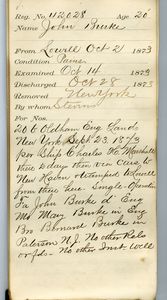 Reg. No. 42,028 Age 20
Name John Burke
From Lowell Oct 21 1873
Condition Same
Examined Oct 14 1873
Discharged Oct 28 1873
Removed New York
By whom Stevens
For Nos.
20 b Oldham Eng Landed
New York Sept 23, 1873
per Ship Charles H. Marshall
there 2 days then via Cars to
New Haven & tramped to Lowell
from there here. Single. Operative
Fa John Burke d Eng
Mo Mary Burke in Eng
Bro Edmond Burke in
Paterson N.J. No other Rels
or fds - No other Inst well